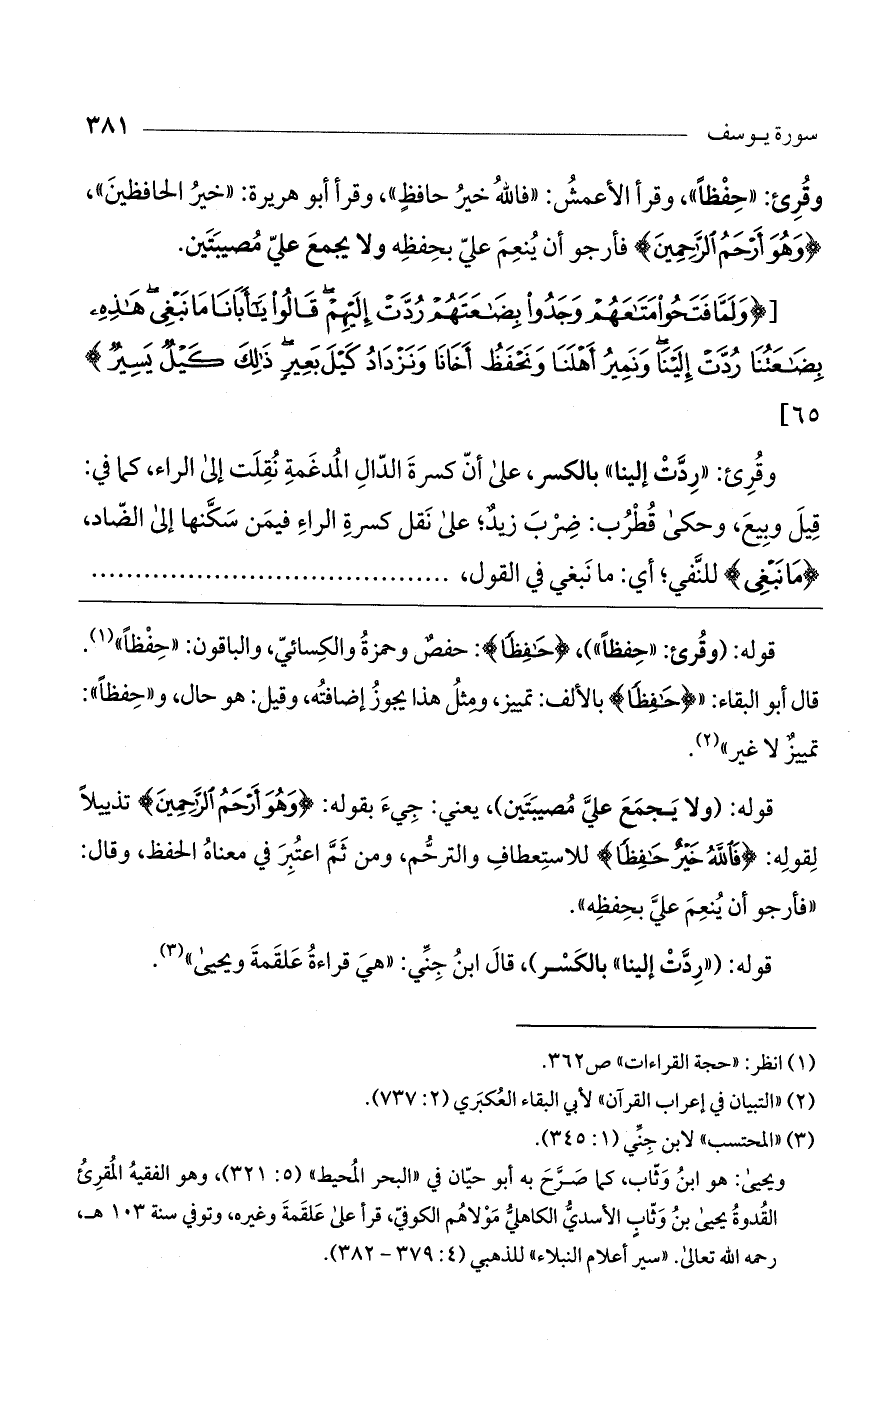 سورة يوسف ٣٨١
وقُرِئ: «حِفْظاً»، وقرأ الأعمشُ: «فاللهُ خيرُ حافظٍ»، وقرأ أبو هريرة: «خيرُ الحافظينَ»،
﴿وَهُوَ أَرْحَمُ ٱلرَّٰحِمِينَ﴾ فأرجو أن يُنعِمَ عليّ بحِفظِه ولا يجمعَ عليّ مُصيبَتَين.
[﴿وَلَمَّا فَتَحُوا۟ مَتَٰعَهُمْ وَجَدُوا۟ بِضَٰعَتَهُمْ رُدَّتْ إِلَيْهِمْ ۖ قَالُوا۟ يَٰٓأَبَانَا مَا نَبْغِى ۖ هَٰذِهِۦ
بِضَٰعَتُنَا رُدَّتْ إِلَيْنَا ۖ وَنَمِيرُ أَهْلَنَا وَنَحْفَظُ أَخَانَا وَنَزْدَادُ كَيْلَ بَعِيرٍ ۖ ذَٰلِكَ كَيْلٌ يَسِيرٌ﴾
٦٥]
وقُرِئ: «رِدَّتْ إلينا» بالكسر، علىٰ أنّ كسرةَ الدّالِ المُدغَمةِ نُقِلَت إلىٰ الراء، كما في:
قِيلَ وبِيعَ، وحكىٰ قُطْرُب: ضِرْبَ زيدٌ؛ علىٰ نَقل كسرةِ الراءِ فيمَن سَكَّنها إلىٰ الضّاد،
﴿مَا نَبْغِى﴾ للنَّفي؛ أي: ما نَبغي في القول، ........................................
قوله: (وقُرِئ: «حِفظاً»)، ﴿حَٰفِظًا﴾: حفصٌ وحمزةُ والكِسائيّ، والباقون: «حِفْظاً»(١).
قال أبو البقاء: «﴿حَٰفِظًا﴾ بالألف: تمييز، ومِثلُ هذا يجوزُ إضافتُه، وقيل: هو حال، و«حِفظاً»:
تمييزٌ لا غير»(٢).
قوله: (ولا يَجمَعَ عليَّ مُصيبَتَين)، يعني: جِيءَ بقوله: ﴿وَهُوَ أَرْحَمُ ٱلرَّٰحِمِينَ﴾ تذييلاً
لِقولِه: ﴿فَٱللَّهُ خَيْرٌ حَٰفِظًا﴾ للاستِعطافِ والترحُّم، ومن ثَمَّ اعتُبِرَ في معناهُ الحفظ، وقال:
«فأرجو أن يُنعِمَ عليَّ بحِفظِه».
قوله: («رِدَّتْ إلينا» بالكَسْر)، قالَ ابنُ جِنِّي: «هيَ قراءةُ عَلقَمةَ ويحيىٰ»(٣).
(١) انظر: «حجة القراءات» ص٣٦٢.
(٢) «التبيان في إعراب القرآن» لأبي البقاء العُكبَري (٢: ٧٣٧).
(٣) «المحتسب» لابن جِنِّي (١: ٣٤٥).
ويحيىٰ: هو ابنُ وَثّاب، كما صَرَّحَ به أبو حيّان في «البحر المُحيط» (٥: ٣٢١)، وهو الفقيهُ المُقرِئُ
القُدوةُ يحيىٰ بنُ وَثّابٍ الأسديُّ الكاهليُّ مَوْلاهُم الكوفيّ، قرأ علىٰ عَلقَمةَ وغيره، وتوفي سنة ١٠٣ هـ،
رحمه الله تعالىٰ. «سير أعلام النبلاء» للذهبي (٤: ٣٧٩ - ٣٨٢).